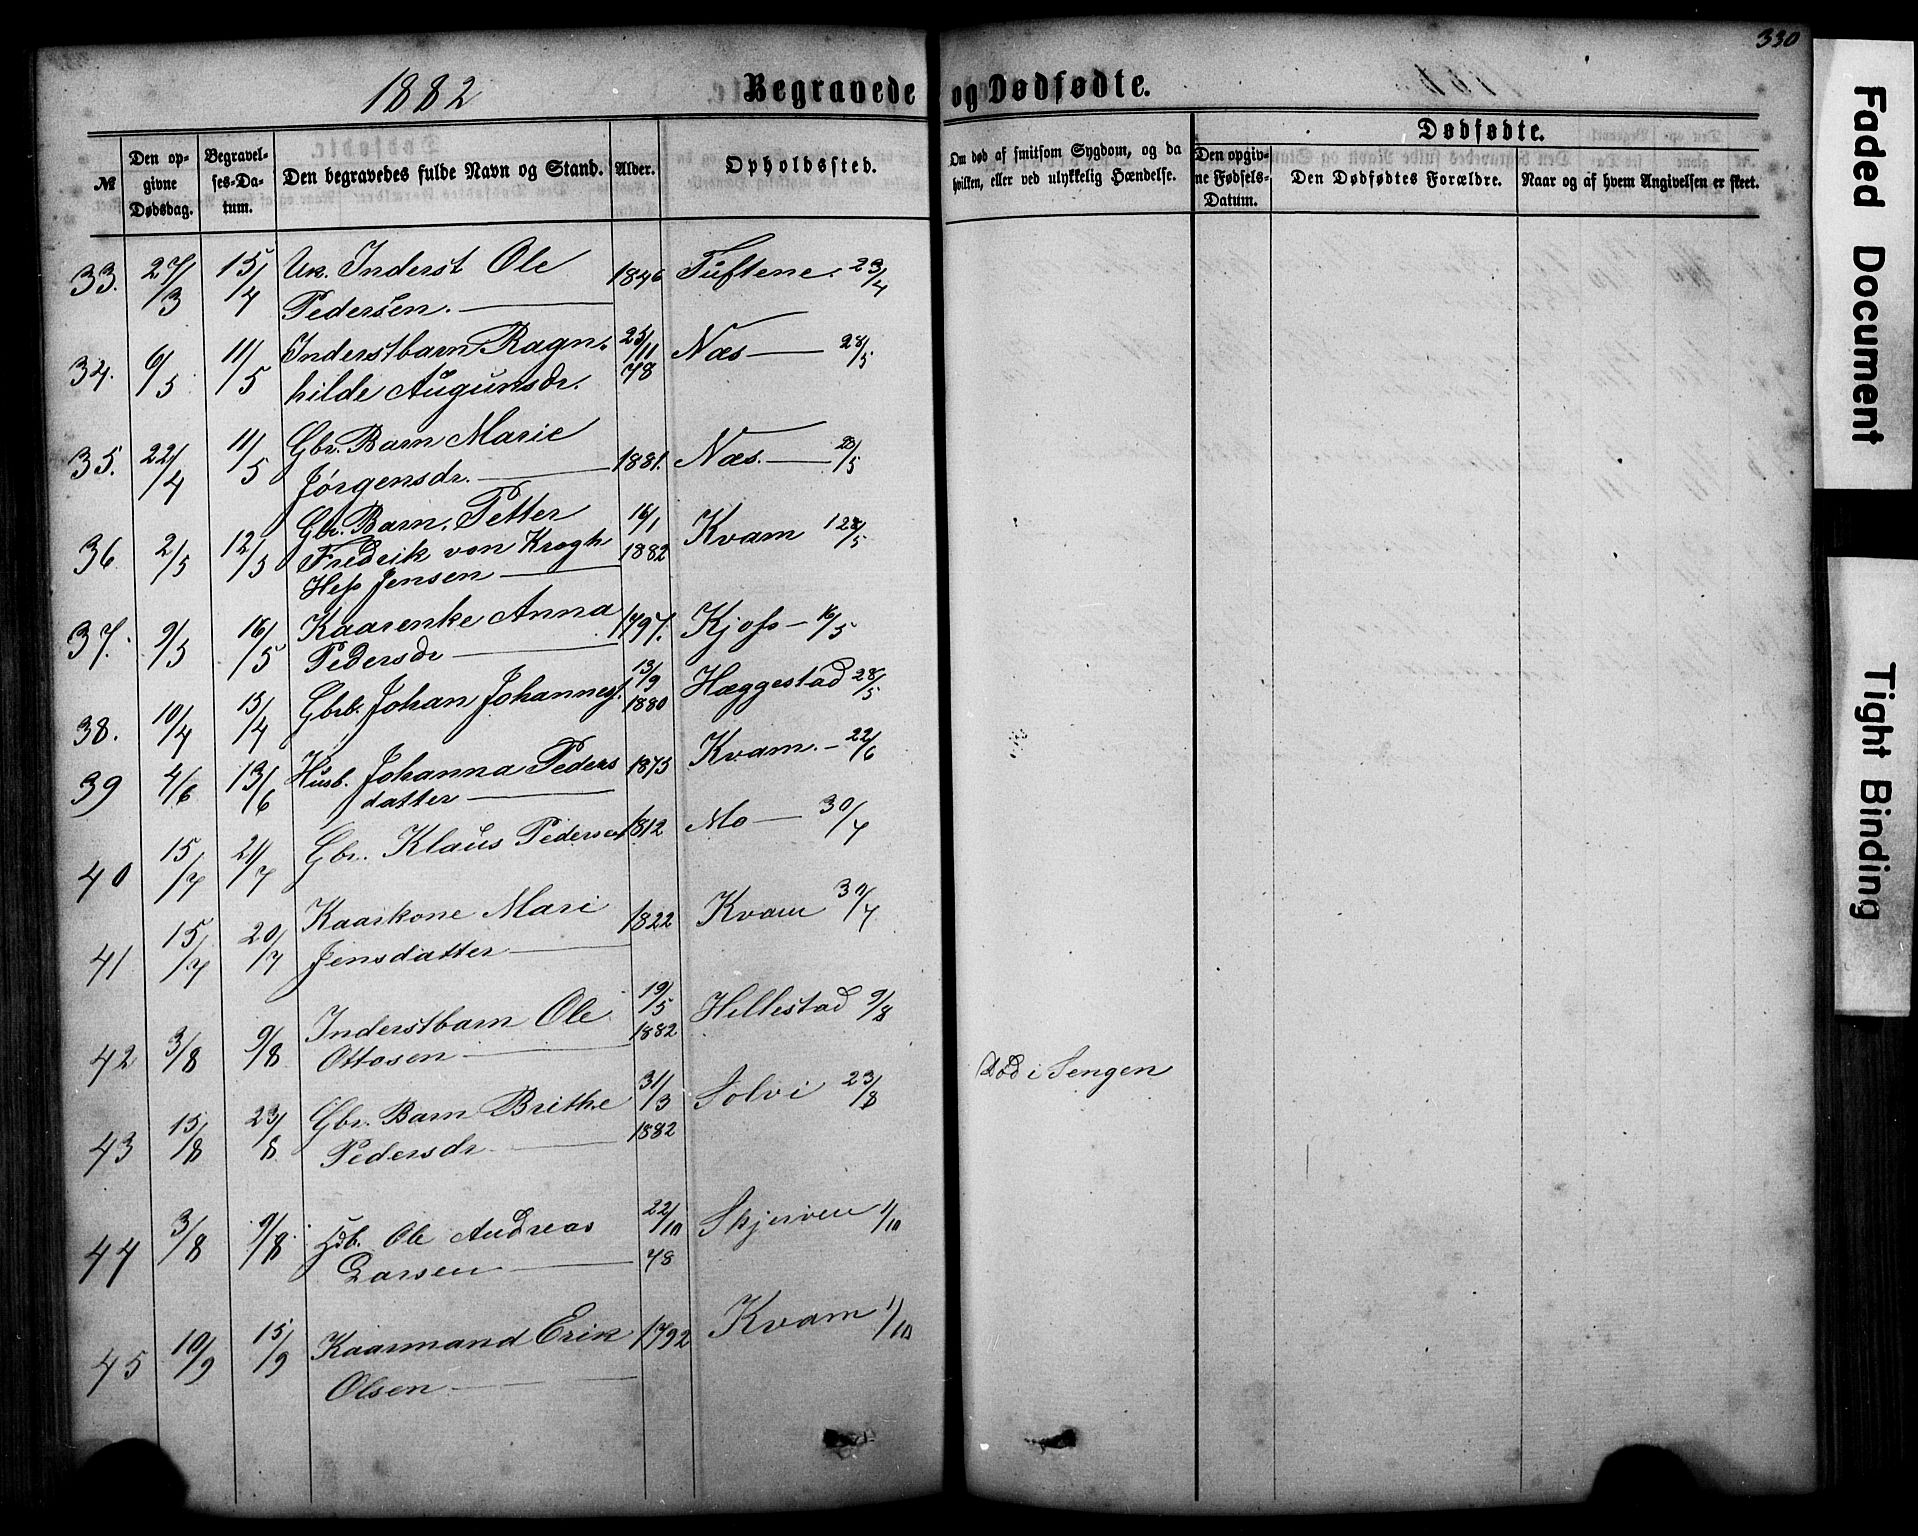 330
1882
Begravede og Dødfødte.
№
Den opgivne Dødsdag.
Begravelses-Datum.
Den begravedes fulde Navn og Stand.
Alder.
Opholdssted.
Om død af smitsom Sygdom, og da hvilken, eller ved ulykkelig Hændelse.
Dødfødte.
Den opgivne Fødsels-Datum.
Den Dødfødtes Forældre.
Naar og af hvem Angivelsen er skeet.
33. 27/3 15/4 Un. Inderst Ole 1846 Tuftene. 23/4
Pedersen.
34. 6/5 11/5 Inderstbarn Ragn- 25/11 78 Næs 28/5
hilde Augunsdr.
35. 22/4 11/5 Gbr. Barn Marie 1881. Næs. 28/5
Jørgensdr.
36 2/5 12/5 Gbr. Barn. Petter 16/1 1882 Kvam 28/5
Fredrik von Krogh
Hess Jensen
37. 9/5 16/5 Kaarenke Anna 1797. Kjoss 16/5
Pedersdr
38. 10/4 15/4 Gbrb. Johan Johannes. 13/9 1880 Hæggestad 28/5
39 4/6 13/6 Husb. Johanna Peders 1875 Kvam. 22/6
datter
40 15/7 21/7 Gbr. Klaus Pedersen 1812 Mo 30/7
41 15/7 20/7 Kaarkone Mari 1822 Kvam 30/7
Jensdatter
42 3/8 9/8 Inderstbarn Ole 19/5 1882 Hillestad 9/8
Ottosen
Død i Sengen
43 15/8 23/8 Gbr. Barn Brithe 31/3 1882 Solvi 23/8
Pedersdr.
44 3/8 9/8 Ole Andreas 22/10 78 Skjerven 1/10
Larsen
45 10/9 15/9 Kaarmand Erik 1792 Kvam 1/10
Olsen
Faded Document
Tight Binding